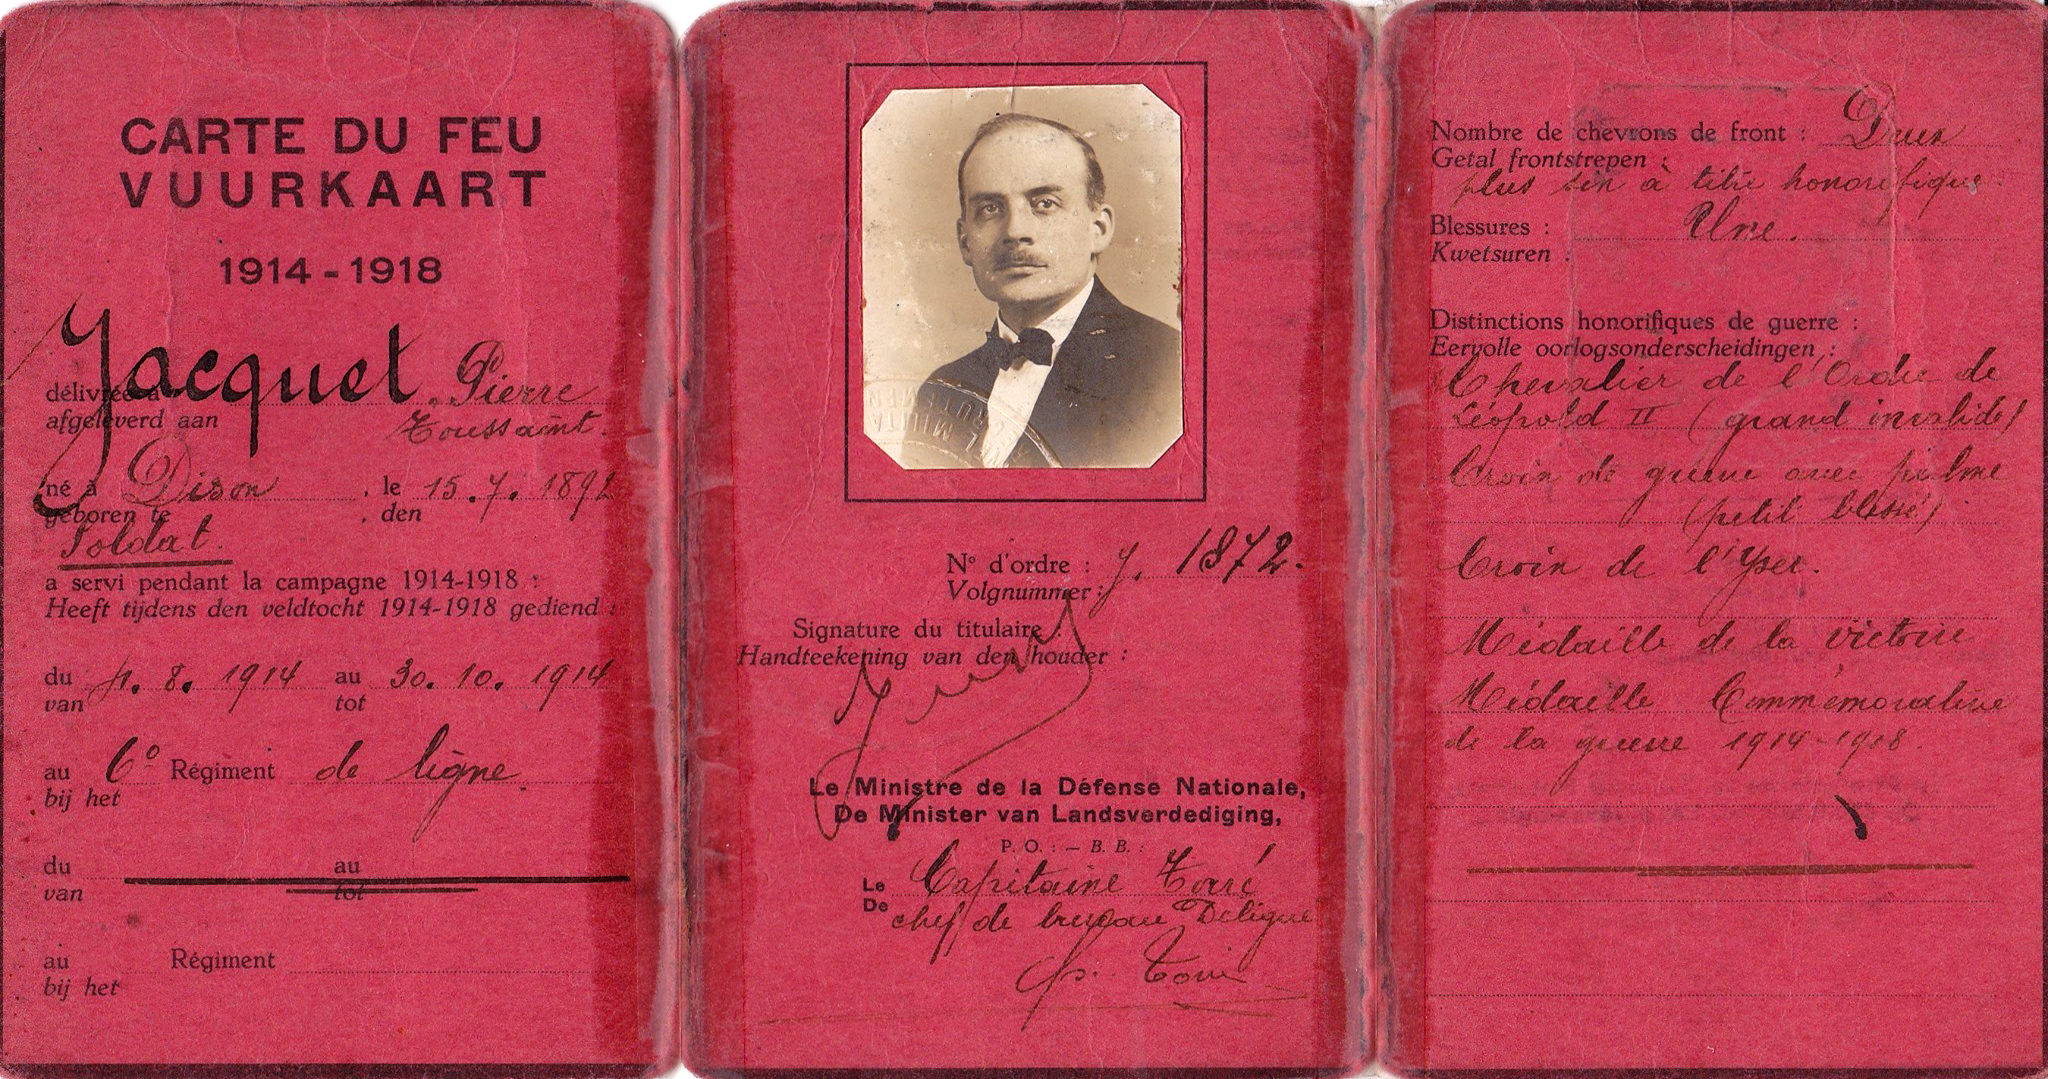 CARTE DU FEU
VUURKAART
1914-1918
délivrée à Jacquet Pierre
afgeleverd aan Toussaint.
né à Dison, le 15.7.1892
geboren te , den
Soldat.
a servi pendant la campagne 1914-1918 :
Heeft tijdens den veldtocht 1914-1918 gediend :
du 4.8.1914 au 30.10.1914
van tot
au 6e Régiment de ligne
bij het
du au
van tot
au Régiment
bij het
No d'ordre : J. 1872.
Volgnummer :
Signature du titulaire :
Handteekening van den houder :
Le Ministre de la Défense Nationale,
De Minister van Landsverdediging,
P. O. : – B. B. :
Le Capitaine
De chef de bureau Deligne
Nombre de chevrons de front : Deux
Getal frontstrepen :
plus un à titre honorifique
Blessures : Une.
Kwetsuren :
Distinctions honorifiques de guerre :
Eervolle oorlogsonderscheidingen :
Chevalier de l'Ordre de
Léopold II (grand invalide)
Croix de guerre avec palme
(petit blessé)
Croix de l'Yser.
Médaille de la victoire
Médaille Commémorative
de la guerre 1914-1918.